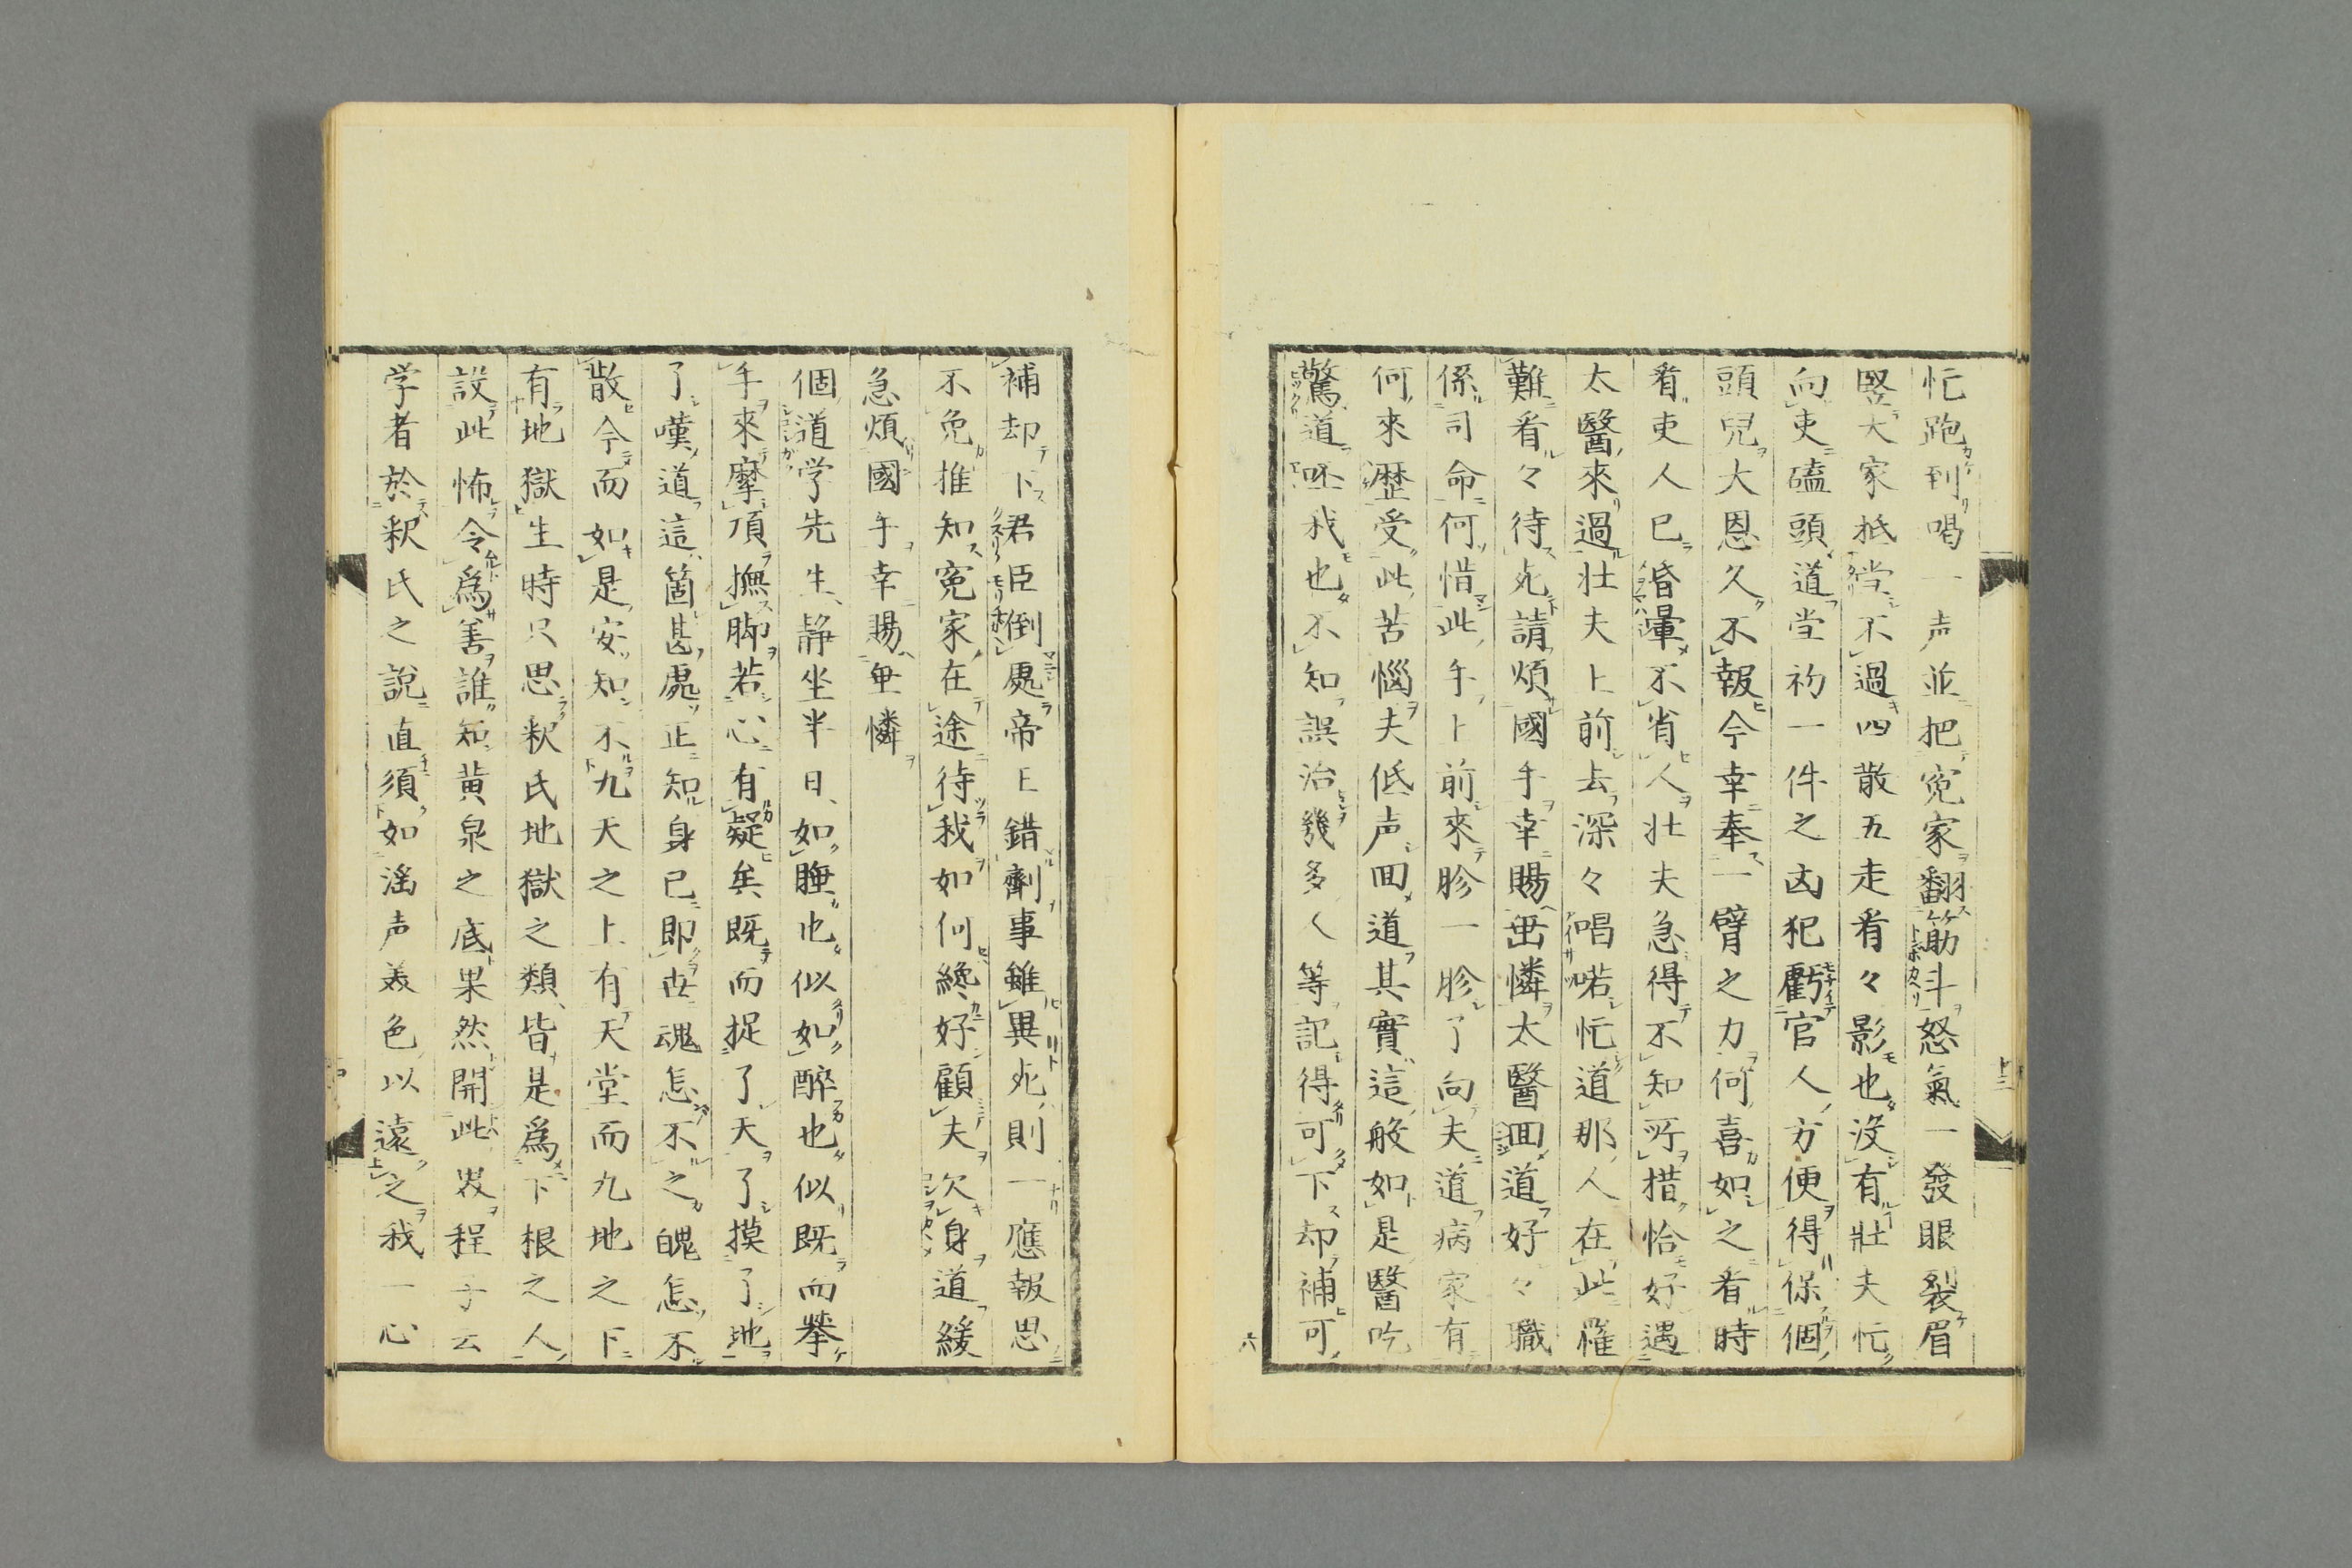 忙跑到喝一声並把寃家翻筋斗怒氣一發眼裂眉
竪大家抵当不過四散五走看々影也没有壯夫忙
向吏磕頭道堂礽一件之凶犯虧官人方便得保個
頭兒大恩久不報今幸奉一臂之力何喜如之看時
看吏人已昏暈不省人壮夫急得不知所措恰好遇
太醫來過壮夫上前去深々唱喏忙道那人在此罹
難看々待死請煩國手幸賜垂憐太醫回道好々職
係司命何惜此手上前來胗一胗了向夫道病家有
何來歴受此苦惱夫低声回道其實這般如是醫吃
驚道呸我也不知誤治幾多人等記得可下却補可
補却下君臣倒處帝王錯劑事雖異死則一應報思
不免推知寃家在途待我如何纔好顧夫欠身道緩
急煩國手幸賜垂憐
個道学先生静坐半日如睡也似如醉也似既而擧
手來摩頂撫脚若心有疑矣既而捉了天了摸了地
了嘆道這箇甚處正知身已即世魂怎不之魄怎不
散今而如是安知不九天之上有天堂而九地之下
有地獄生時只思釈氏地獄之類皆是為下根之人
設此怖令為善誰知黄泉之底果然開此畏程子云
学者於釈氏之説直須如滛声美色以遠之我一心
十二
六